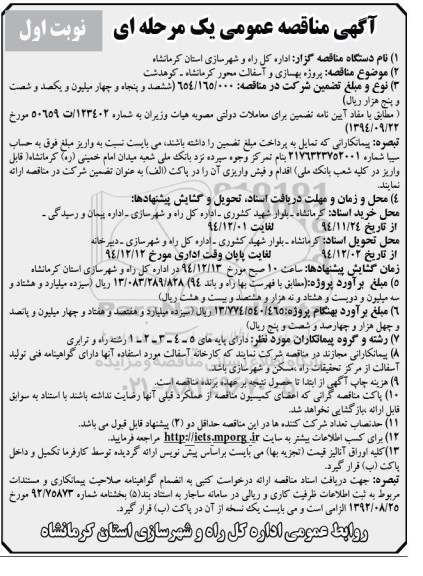 آگهی مناقصه عمومی یک مرحله ای
نوبت اول
۱) نام دستگاه مناقصه گزار: اداره کل راه و شهرسازی استان کرمانشاه
۲) موضوع مناقصه: پروژه بهسازی و آسفالت محور کرمانشاه ـ کوهدشت
۳) نوع و مبلغ تضمین شرکت در مناقصه: ۶۵۴/۱۶۵/۰۰۰ (ششصد و پنجاه و چهار میلیون و یکصد و شصت
و پنج هزار ریال)
( مطابق با مفاد آیین نامه تضمین برای معاملات دولتی مصوبه هیات وزیران به شماره ۱۲۳۴۰۲/ت ۵۰۶۵۹ مورخ
۱۳۹۴/۰۹/۲۲)
تبصره: پیمانکارانی که تمایل به پرداخت مبلغ تضمین را داشته باشند، می بایست نسبت به واریز مبلغ فوق به حساب
سیبا شماره ۲۱۷۶۳۲۳۷۵۲۰۰۱ بنام تمرکز وجوه سپرده نزد بانک ملی شعبه میدان امام خمینی (ره) کرمانشاه( قابل
واریز در کلیه شعب بانک ملی) اقدام و فیش واریزی آن را در پاکت (الف) به عنوان تضمین شرکت در مناقصه ارائه
نمایند.
۴) محل و زمان و مهلت دریافت اسناد، تحویل و گشایش پیشنهادها:
محل خرید اسناد: کرمانشاه ـ بلوار شهید کشوری ـ اداره کل راه و شهرسازی ـ اداره پیمان و رسیدگی ـ
از تاریخ ۹۴/۱۱/۲۴ لغایت ۹۴/۱۲/۰۱
محل تحویل اسناد: کرمانشاه ـ بلوار شهید کشوری ـ اداره کل راه و شهرسازی ـ دبیرخانه
از تاریخ ۹۴/۱۲/۰۲ لغایت پایان وقت اداری مورخ ۹۴/۱۲/۱۲
زمان گشایش پیشنهادها: ساعت ۱۰ صبح مورخ ۹۴/۱۲/۱۳ در اداره کل راه و شهرسازی استان کرمانشاه
۵) مبلغ برآورد پروژه:(مطابق با فهرست بها راه و باند ۹۴) ۱۳/۰۸۳/۲۸۹/۸۲۸ ریال (سیزده میلیارد و هشتاد و
سه میلیون و دویست و هشتاد و نه هزار و هشتصد و بیست و هشت ریال)
۶) مبلغ برآورد بهنگام پروژه: ۱۳/۷۷۴/۵۴۰/۴۶۵ ریال (سیزده میلیارد و هفتصد و هفتاد و چهار میلیون و پانصد
و چهل هزار و چهارصد و شصت و پنج ریال)
۷) رشته و گروه پیمانکاران مورد نظر: دارای پایه های ۵ ـ ۴ ـ ۳ ـ ۲ ـ ۱ رشته راه و ترابری
۸) پیمانکارانی مجازند در مناقصه شرکت نمایند که کارخانه آسفالت مورد استفاده آنها دارای گواهینامه فنی تولید
آسفالت از مرکز تحقیقات راه ،مسکن و شهرسازی باشد.
۹) هزینه چاپ آگهی از ابتدا تا حصول نتیجه بر عهده برنده مناقصه است.
۱۰) پاکت مناقصه گرانی که اعضای کمیسیون مناقصه از عملکرد قبلی آنها رضایت نداشته باشند با استناد به سوابق
قابل ارائه ،بازگشایی نخواهد شد.
۱۱) حدنصاب تعداد شرکت کننده ها در این مناقصه حداقل دو (۲) پیشنهاد قابل قبول می باشد.
۱۲) برای کسب اطلاعات بیشتر به سایت http://iets.mporg.ir مراجعه فرمایید.
۱۳)کلیه اوراق آنالیز قیمت (تجزیه بها) می بایست براساس پیش نویس ارائه گردیده توسط کارفرما تکمیل و داخل
پاکت (ب) قرار گیرد.
تبصره: جهت دریافت اسناد مناقصه ارائه درخواست کتبی به انضمام گواهینامه صلاحیت پیمانکاری و مستندات
مربوط به ثبت اطلاعات ظرفیت کاری و ریالی در سامانه ساجار به استناد بند(۵) بخشنامه شماره ۹۲/۷۵۸۷۳ مورخ
۱۳۹۲/۰۸/۲۵ الزامی است و می بایست یک نسخه از آن در پاکت (ب) قرار گیرد.
روابط عمومی اداره کل راه و شهرسازی استان کرمانشاه